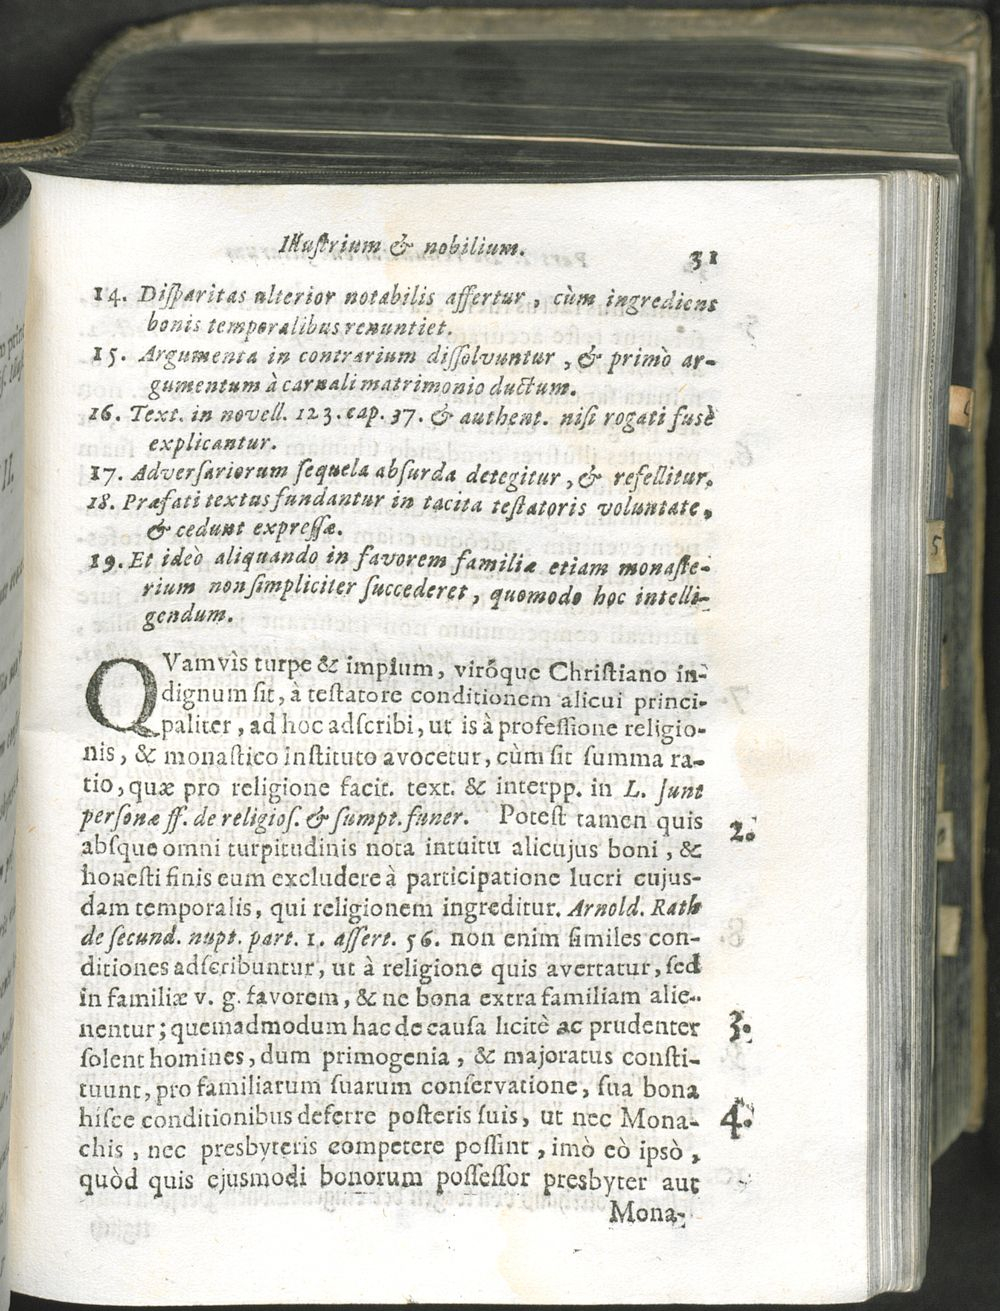 Illuſtrium & nobilium. 31
14. Diſparitas ulterior notabilis affertur, cùm ingrediens
bonis temporalibus renuntiet.
15. Argumenta in contrarium diſſolvuntur, & primò ar-
gumentum à carnali matrimonio ductum.
16. Text. in novell. 123. cap. 37. & authent. niſi rogati fusè
explicantur.
17. Adverſariorum ſequela abſurda detegitur, & refellitur.
18. Præfati textus fundantur in tacita teſtatoris voluntate,
& cedunt expreſſæ.
19. Et ideò aliquando in favorem familiæ etiam monaſte-
rium non ſimpliciter ſuccederet, quomodo hoc intelli-
gendum.
QVamvis turpe & impium, viróque Chriſtiano in-
dignum ſit, à teſtatore conditionem alicui princi-
paliter, ad hoc adſcribi, ut is à profeſſione religio-
nis, & monaſtico inſtituto avocetur, cùm ſit ſumma ra-
tio, quæ pro religione facit. text. & interpp. in L. ſunt
perſonæ ff. de religioſ. & ſumpt. funer. Poteſt tamen quis
2.
abſque omni turpitudinis nota intuitu alicujus boni, &
honeſti finis eum excludere à participatione lucri cujus-
dam temporalis, qui religionem ingreditur. Arnold. Rath
de ſecund. nupt. part. 1. aſſert. 56. non enim ſimiles con-
ditiones adſcribuntur, ut à religione quis avertatur, ſed
in familiæ v. g. favorem, & ne bona extra familiam alie-
nentur; quemadmodum hac de cauſa licitè ac prudenter
3.
ſolent homines, dum primogenia, & majoratus conſti-
tuunt, pro familiarum ſuarum conſervatione, ſua bona
hiſce conditionibus deferre poſteris ſuis, ut nec Mona-
4.
chis, nec presbyteris competere poſſint, imò eò ipsò,
quòd quis ejusmodi bonorum poſſeſſor presbyter aut
Mona-